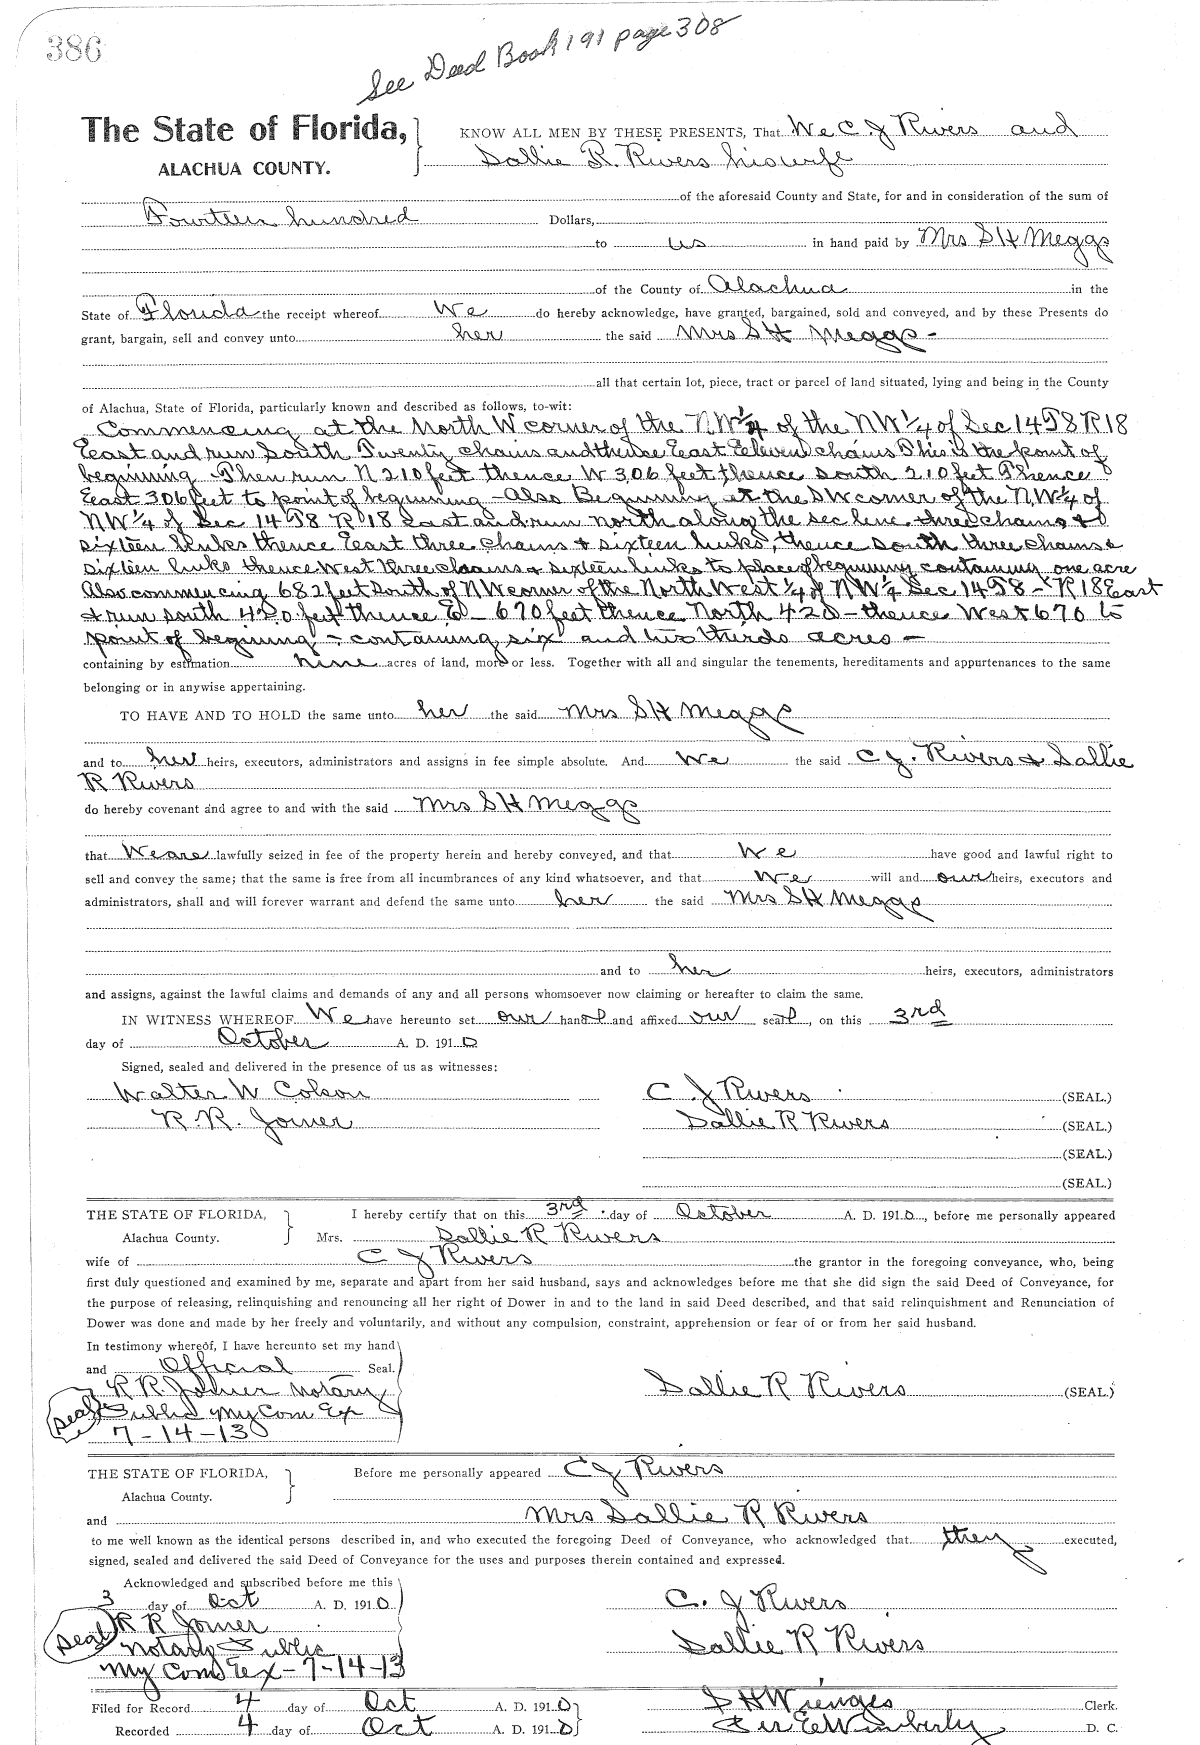 386
See Deed Book 191 page 308
The State of Florida, KNOW ALL MEN BY THESE PRESENTS, That We C J Rivers and
ALACHUA COUNTY. Sallie R. Rivers his wife
of the aforesaid County and State, for and in consideration of the sum of
Fourteen hundred Dollars,
to us in hand paid by Mrs S H Meggs
of the County of Alachua in the
State of Florida the receipt whereof We do hereby acknowledge, have granted, bargained, sold and conveyed, and by these Presents do
grant, bargain, sell and convey unto her the said Mrs S H Meggs -
all that certain lot, piece, tract or parcel of land situated, lying and being in the County
of Alachua, State of Florida, particularly known and described as follows, to-wit:
Commencing at the North W corner of the NW 1/4 of the NW 1/4 of Sec 14 T8 R18
East and run South Twenty chains and East Eleven chains This is the point of
beginning Then run N 210 feet thence W 306 feet thence south 210 feet Thence
East 306 feet to point of beginning - Also Beginning at the SW corner of the N.W 1/4 of
NW 1/4 of Sec 14 T8 R18 East and run north along the sec line three chains &
sixteen links thence East three chains & sixteen links, thence south three chains &
sixteen links thence West three chains & sixteen links to place of beginning containing one acre
Also commencing 682 feet South of NW corner of the North West 1/4 of NW 1/4 Sec 14 T8 - R18 East
& run south 420 feet thence E - 670 feet thence North 420 - thence West 670 to
point of beginning - containing six and two thirds acres -
containing by estimation nine acres of land, more or less. Together with all and singular the tenements, hereditaments and appurtenances to the same
belonging or in anywise appertaining.
TO HAVE AND TO HOLD the same unto her the said Mrs S H Meggs
and to her heirs, executors, administrators and assigns in fee simple absolute. And We the said C J. Rivers & Sallie
R Rivers
do hereby covenant and agree to and with the said Mrs S H Meggs
that We are lawfully seized in fee of the property herein and hereby conveyed, and that We have good and lawful right to
sell and convey the same; that the same is free from all incumbrances of any kind whatsoever, and that We will and our heirs, executors and
administrators, shall and will forever warrant and defend the same unto her the said Mrs S H Meggs
and to her heirs, executors, administrators
and assigns, against the lawful claims and demands of any and all persons whomsoever now claiming or hereafter to claim the same.
IN WITNESS WHEREOF We have hereunto set our hand and affixed our seal, on this 3rd
day of October A. D. 1910
Signed, sealed and delivered in the presence of us as witnesses:
Walter W Colson C J Rivers (SEAL.)
R. R. Joiner Sallie R Rivers (SEAL.)
(SEAL.)
(SEAL.)
THE STATE OF FLORIDA, I hereby certify that on this 3rd day of October A. D. 1910, before me personally appeared
Alachua County. Mrs. Sallie R Rivers
wife of C J Rivers the grantor in the foregoing conveyance, who, being
first duly questioned and examined by me, separate and apart from her said husband, says and acknowledges before me that she did sign the said Deed of Conveyance, for
the purpose of releasing, relinquishing and renouncing all her right of Dower in and to the land in said Deed described, and that said relinquishment and Renunciation of
Dower was done and made by her freely and voluntarily, and without any compulsion, constraint, apprehension or fear of or from her said husband.
In testimony whereof, I have hereunto set my hand
and Official Seal.
R R. Joiner Notary Sallie R Rivers (SEAL)
Seal Public My Com Ex
7-14-13
THE STATE OF FLORIDA, Before me personally appeared C J Rivers
Alachua County.
and Mrs Sallie R Rivers
to me well known as the identical persons described in, and who executed the foregoing Deed of Conveyance, who acknowledged that they executed,
signed, sealed and delivered the said Deed of Conveyance for the uses and purposes therein contained and expressed.
Acknowledged and subscribed before me this
3 day of Oct A. D. 1910 C. J Rivers
Seal R R Joiner
Notary Public Sallie R Rivers
My Com Ex - 7-14-13
Filed for Record 4 day of Oct A. D. 1910 S H Wienges Clerk.
Recorded 4 day of Oct A. D. 1910 E Wimberly D. C.